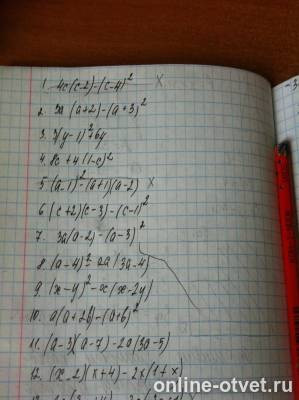 1. 4c(c-2)-(c-4)² x
2. 3a(a+2)-(a+3)²
3. 3(y-1)²+6y
4. 8c+4(1-c)²
5 (a-1)²-(a+1)(a-2) x
6 (c+2)(c-3)-(c-1)²
7. 3a(a-2)-(a-3)²
8. (a-4)²-2a(3a-4)
9. (x-y)²-x(x-2y)
10. a(a+2b)-(a+b)²
11. (a-3)(a-7)-2a(3a-5)
12. (x-2)(x+4)-2x(1+x)
online-otvet.ru